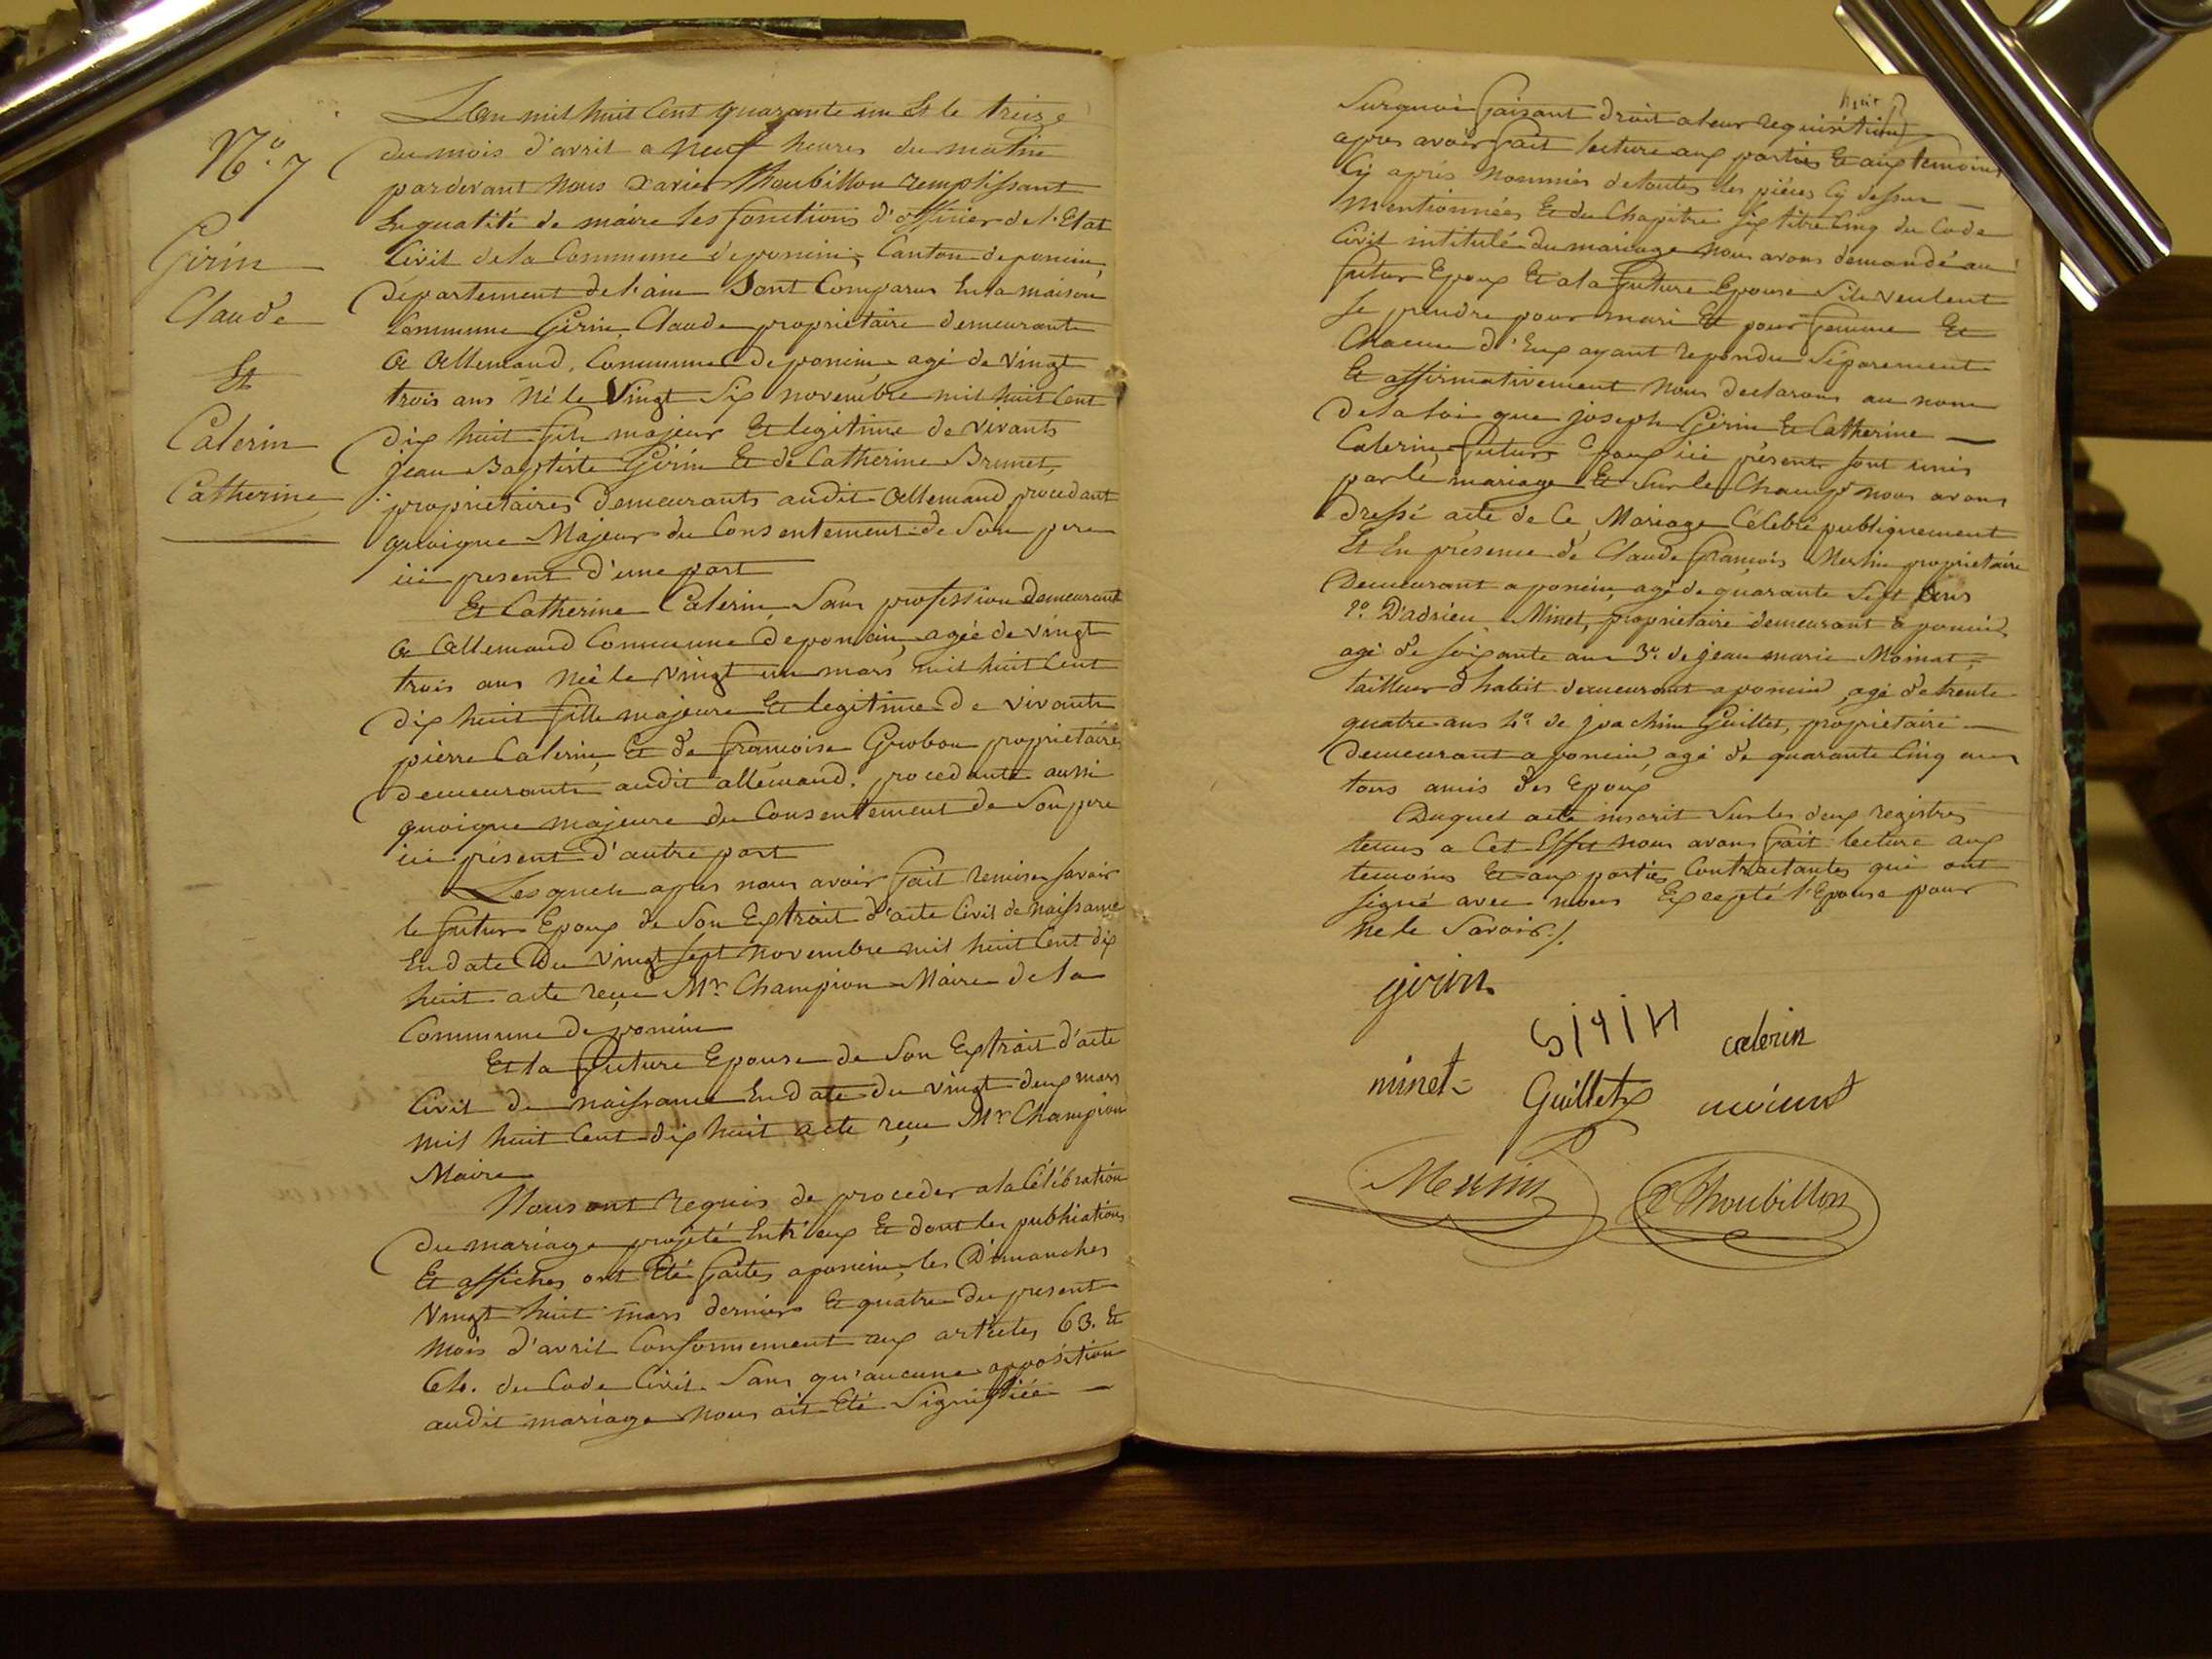 N.o 7
Girin
Claude
Et
Calerin
Catherine
L'an mil huit Cent quarante un Et le treize
du mois d'avril a neuf heures du matin
pardevant nous Xavier Thoubillon remplissant
En qualité de maire les fonctions d'officier de l'Etat
Civil de la Commune de poncin, Canton de poncin,
Département de l'ain Sont Comparus En la maison
Commune Girin Claude propriétaire demeurant
a Allemand, Commune de poncin agé de vingt
trois ans né le Vingt Six novembre mil huit Cent
dix huit fils majeur Et légitime de vivants
jean Baptiste Girin Et de Catherine Brunet,
propriétaires demeurants audit Allemand procedant
quoique Majeur du Consentement de Son pere
ici present d'une part
Et Catherine Calerin Sans profession demeurant
a Allemand Commune de poncin, agée de vingt
trois ans née le vingt un mars mil huit Cent
dix huit fille majeure Et legitime de vivants
pierre Calerin, Et de françoise Grobon propriétaires
demeurants audit allemand. procedante aussi
quoique majeure du Consentement de Son pere
ici présent d'autre part
Lesquels apres nous avoir fait remise Savoir
le futur Epoux de Son Extrait d'acte Civil de naissance
En date Du vingt Sept novembre mil huit Cent dix
huit acte reçu Mr Champion Maire de la
Commune de poncin
Et la future Epouse de Son Extrait d'acte
Civil de naissance En date du vingt deux mars
mil huit Cent dix huit acte reçu Mr Champion
Maire
Nous ont requis de proceder a la Célébration
du mariage projeté Entr'eux Et dont les publications
Et affiches ont Eté faites a poncin, les Dimanches
vingt huit mars dernier Et quatre du present
mois d'avril Conformement aux articles 63. Et
64. du Code Civil Sans qu'aucune opposition
audit mariage nous ait Eté Signifiée —
huit
Surquoi faisant droit a leur requisition
apres avoir fait lecture aux parties Et aux temoins
Cy après nommés de toutes les pièces Cy dessus —
mentionnées Et du Chapitre Six titre Cinq du Code
Civil intitulé du mariage nous avons demandé au
futur Epoux Et a la future Epouse S'ils veulent
Se prendre pour mari Et pour femme Et
Chacun d'Eux ayant repondu Séparement
Et affirmativement nous declarons au nom
de la loi que joseph Girin Et Catherine —
Calerin futurs Epoux ici présents sont unis
par le mariage Et Sur le Champ nous avons
dressé acte de Ce Mariage Célébré publiquement
Et En présence de Claude françois Merlin propriétaire
Demeurant a poncin, agé de quarante Sept ans
2o. D'adrien Minet, propriétaire demeurant a poncin
agé de soixante ans 3o. de jean marie Moinat,
tailleur d'habit demeurant a poncin, agé de trente
quatre ans 4o. de joachim Guillet, propriétaire —
demeurant a poncin, agé de quarante Cinq ans
tous amis des Epoux
Duquel acte inscrit Sur les deux registres
tenus a Cet Effet nous avons fait lecture aux
temoins Et aux parties Contractantes qui ont
signé avec nous Excepté l'Epouse pour
ne le Savoir./.
girin
calerin
minet
Guillet
Merlin
X Thoubillon